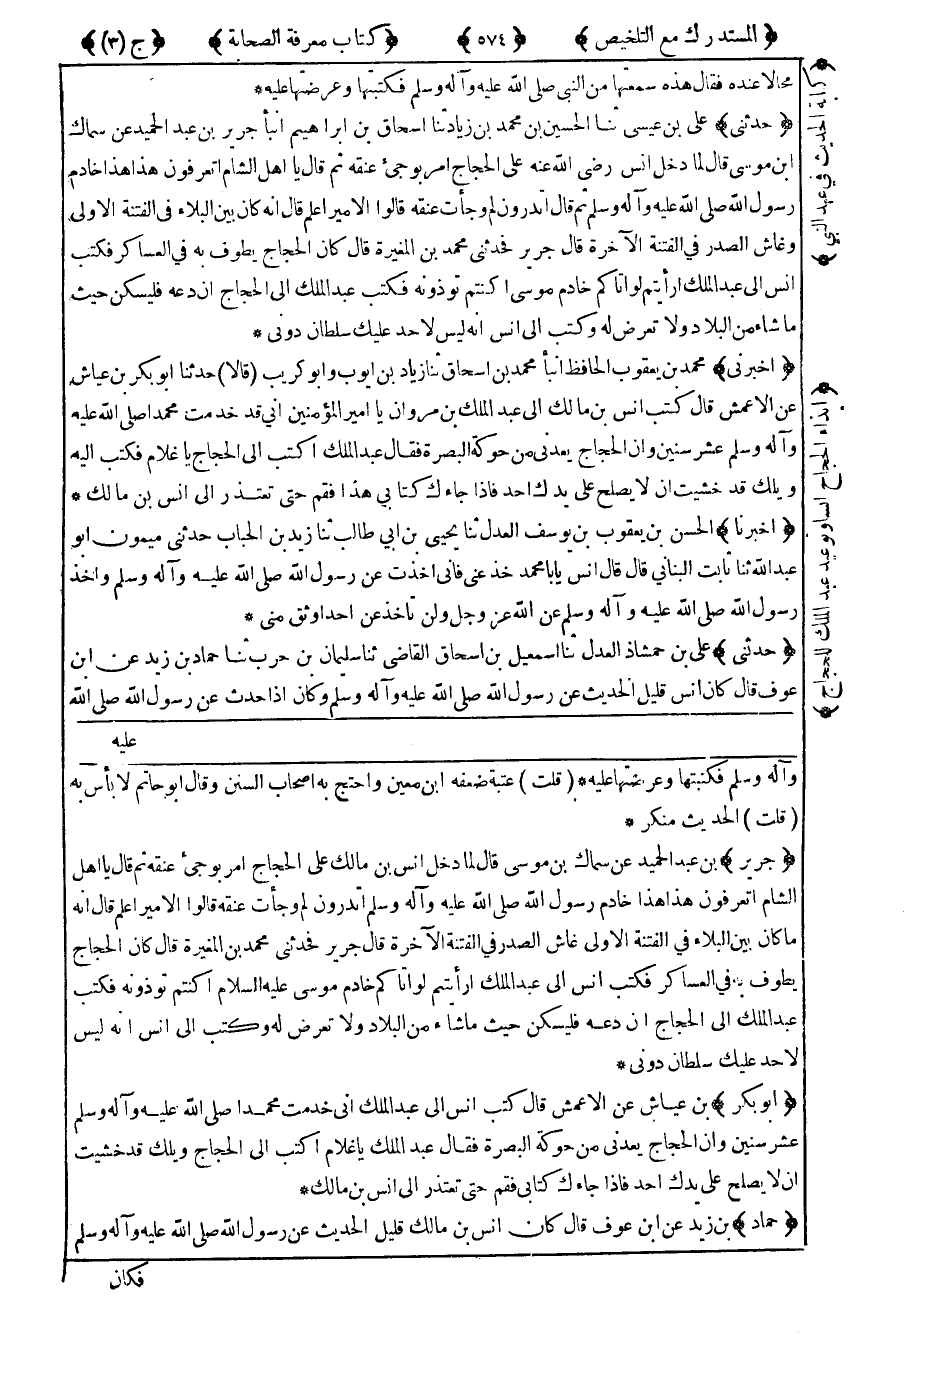 ﴿ المستدرك مع التلخيص ﴾ ﴿ ٥٧٤ ﴾ ﴿ كتاب معرفة الصحابة ﴾ ﴿ ج (٣) ﴾
مجالا عنده فقال هذه سمعتها من النبي صلى الله عليه وآله وسلم فكتبتها وعرضتها عليه *
﴿ حدثني ﴾ علي بن عيسى ثنا الحسين بن محمد بن زياد ثنا اسحاق بن ابراهيم انبأ جرير بن عبد الحميد عن سماك
ابن موسى قال لما دخل انس رضى الله عنه على الحجاج امر بوجئ عنقه ثم قال يا اهل الشام اتعرفون هذا هذا خادم
رسول الله صلى الله عليه وآله وسلم ثم قال اتدرون لم وجأت عنقه قالوا الامير اعلم قال انه كان بين البلاء في الفتنة الاولى
وغاش الصدر في الفتنة الآخرة قال جرير فحدثنى محمد بن المغيرة قال كان الحجاج يطوف به في العساكر فكتب
انس الى عبد الملك ارأيتم لو اتاكم خادم موسى اكنتم توذونه فكتب عبد الملك الى الحجاج ان دعه فليسكن حيث
ماشاء من البلاد ولا تعرض له وكتب الى انس انه ليس لاحد عليك سلطان دونى *
﴿ اخبرنى ﴾ محمد بن يعقوب الحافظ انبأ محمد بن اسحاق ثنا زياد بن ايوب وابو كريب (قالا) حدثنا ابو بكر بن عياش
عن الاعمش قال كتب انس بن مالك الى عبد الملك بن مروان يا امير المؤمنين اني قد خدمت محمدا صلى الله عليه
وآله وسلم عشر سنين وان الحجاج يعدنى من حوكة البصرة فقال عبد الملك اكتب الى الحجاج يا غلام فكتب اليه
ويلك قد خشيت ان لا يصلح على يدك احد فاذا جاءك كتابي هذا فقم حتى تعتذر الى انس بن مالك *
﴿ اخبرنا ﴾ الحسن بن يعقوب بن يوسف العدل ثنا يحيى بن ابي طالب ثنا زيد بن الحباب حدثنى ميمون ابو
عبد الله ثنا ثابت البناني قال قال انس يا با محمد خذ عني فاني اخذت عن رسول الله صلى الله عليه وآله وسلم واخذ
رسول الله صلى الله عليه وآله وسلم عن الله عز وجل ولن تأخذ عن احد اوثق منى *
﴿ حدثنى ﴾ على بن حمشاذ العدل ثنا اسمعيل بن اسحاق القاضي ثنا سليمان بن حرب ثنا حماد بن زيد عن ابن
عوف قال كان انس قليل الحديث عن رسول الله صلى الله عليه وآله وسلم وكان اذا حدث عن رسول الله صلى الله
عليه
وآله وسلم فكتبتها وعرضتها عليه * (قلت) عتبة ضعفه ابن معين واحتج به اصحاب السنن وقال ابو حاتم لا بأس به
(قلت) الحديث منكر *
﴿ جرير ﴾ بن عبد الحميد عن سماك بن موسى قال لما دخل انس بن مالك على الحجاج امر بوجئ عنقه ثم قال يا اهل
الشام اتعرفون هذا هذا خادم رسول الله صلى الله عليه وآله وسلم اتدرون لم وجأت عنقه قالوا الامير اعلم قال انه
ما كان بين البلاء في الفتنة الاولى غاش الصدر في الفتنة الآخرة قال جرير فحدثنى محمد بن المغيرة قال كان الحجاج
يطوف به في العساكر فكتب انس الى عبد الملك ارأيتم لو اتاكم خادم موسى عليه السلام اكنتم توذونه فكتب
عبد الملك الى الحجاج ان دعه فليسكن حيث ماشاء من البلاد ولا تعرض له وكتب الى انس انه ليس
لاحد عليك سلطان دونى *
﴿ ابو بكر ﴾ بن عياش عن الاعمش قال كتب انس الى عبد الملك انى خدمت محمدا صلى الله عليه وآله وسلم
عشر سنين وان الحجاج يعدنى من حوكة البصرة فقال عبد الملك يا غلام اكتب الى الحجاج ويلك قد خشيت
ان لا يصلح على يدك احد فاذا جاءك كتابى فقم حتى تعتذر الى انس بن مالك *
﴿ حماد ﴾ بن زيد عن ابن عوف قال كان انس بن مالك قليل الحديث عن رسول الله صلى الله عليه وآله وسلم
فكان
﴿ كتابة الحديث في عهد النبي ﴾
﴿ ايذاء الحجاج انسا ووعيد عبد الملك للحجاج ﴾